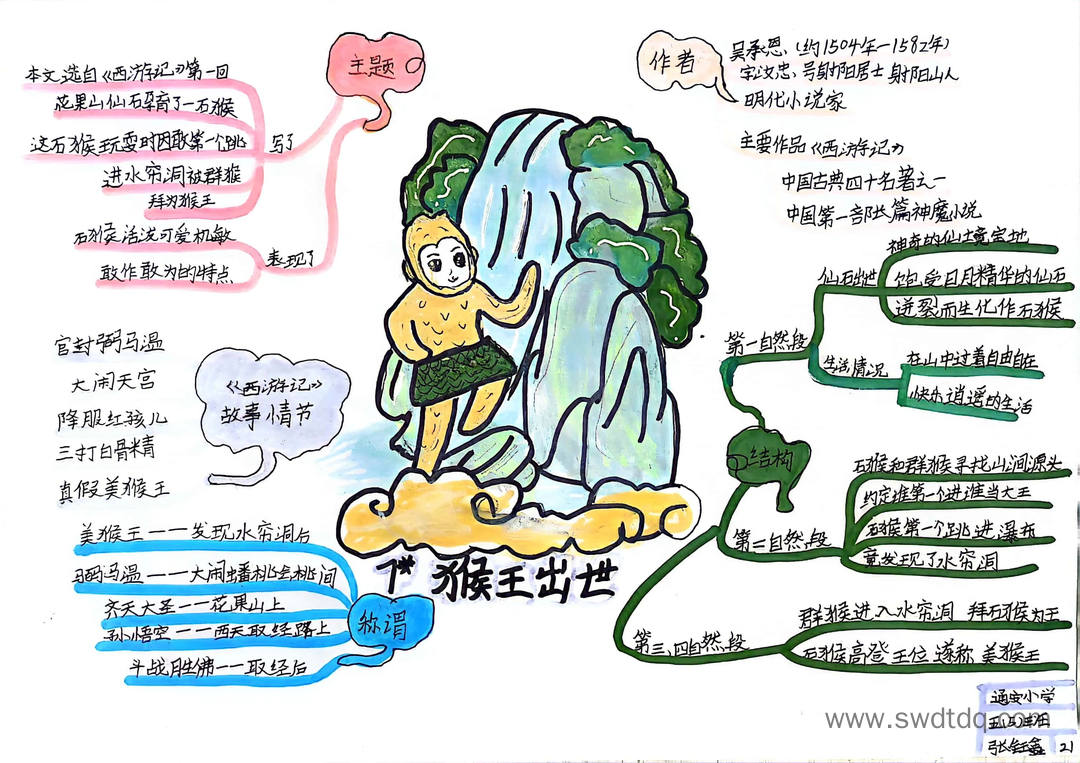 主题
本文选自《西游记》第一回
花果山仙石孕育了一石猴
这石猴玩耍时因敢第一个跳
进水帘洞被群猴
拜为猴王
写了
石猴活泼可爱机敏
敢作敢为的特点
表现了
作者
吴承恩,(约1504年一1582年)
字汝忠、号射阳居士射阳山人
明代小说家
主要作品《西游记》
中国古典四十名著之一
中国第一部长篇神魔小说
《西游记》
故事情节
官封弼马温
大闹天宫
降服红孩儿
三打白骨精
真假美猴王
称谓
美猴王一一发现水帘洞后
弼马温一一大闹蟠桃会桃间
齐天大圣一一花果山上
孙悟空一一西天取经路上
斗战胜佛一一取经后
7* 猴王出世
结构
第一自然段
仙石出世
神奇的仙境宝地
饱受日月精华的仙石
迸裂而生化作石猴
生活情况
在山中过着自由自在
快乐逍遥的生活
第二自然段
石猴和群猴寻找山涧源头
约定谁第一个进谁当大王
石猴第一个跳进瀑布
竟发现了水帘洞
第三、四自然段
群猴进入水帘洞 拜石猴为王
石猴高登王位 遂称 美猴王
通安小学
张钰鑫 21
www.swdtdq.com